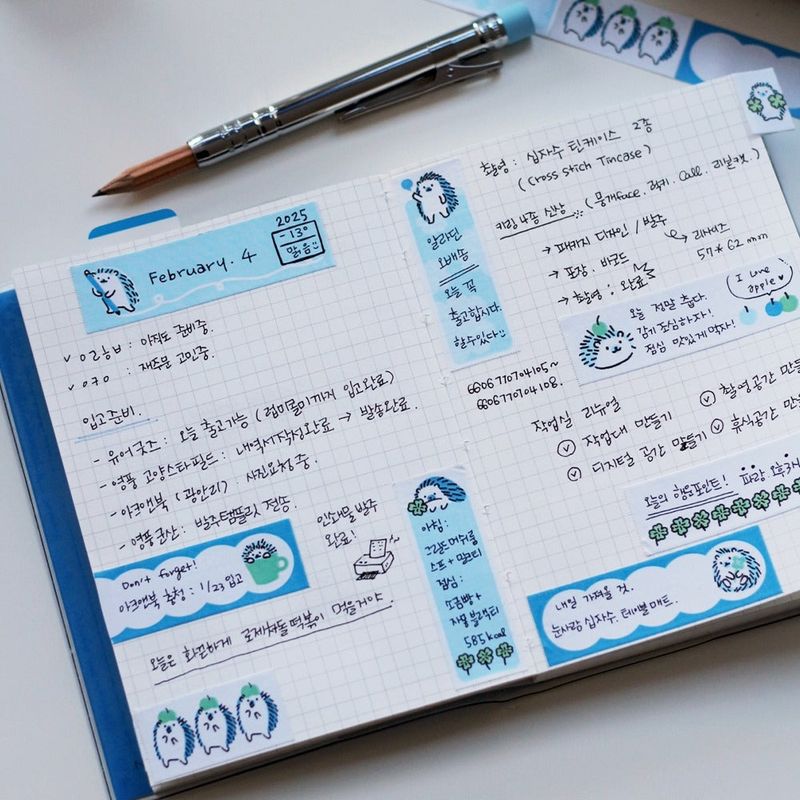 2025
-13°
맑음
February. 4
✓ 아직도 준비중.
✓ : 재주문 고민중.
입고준비.
- 유어굿즈 : 오늘 출고가능 (럽미콜미까지 입고완료)
- 영풍 고양스타필드 : 내역서작성완료 → 발송완료.
- 아크앤북 (광안리) 사진요청 중.
- 영풍군산 : 발주템플릿 전송.
인쇄물 발주
완료!
Don't forget!
아크앤북 충청 : 1/23 입고
오늘은 화끈하게 로제찜닭떡볶이 먹을거야
알라딘
오배송
오늘 꼭
출고합시다.
할수있다
6606770704105~
6606770704108.
아침 :
그릴드 머쉬룸
스프 + 말코티
점심 :
소금빵 +
자몽 블랙티
585 kcal
촬영 : 십자수 틴케이스 2종
(Cross Stich Tincase)
키링 4종 신상 (뭉개face. 럭키. Call. 리본키.)
→ 패키지 디자인 / 발주
리사이즈
57 * 62 mm
→ 포장. 바코드
→ 촬영 : 완료
I love
apple
오늘 정말 춥다.
감기 조심하자!
점심 맛있게 먹자!
작업실 리뉴얼
작업대 만들기
촬영공간 만들
디지털 공간 만들기
휴식공간 만
오늘의 행운포인트! 파랑 오후3시
내일 가져올 것.
눈사람 십자수. 테이블 매트.